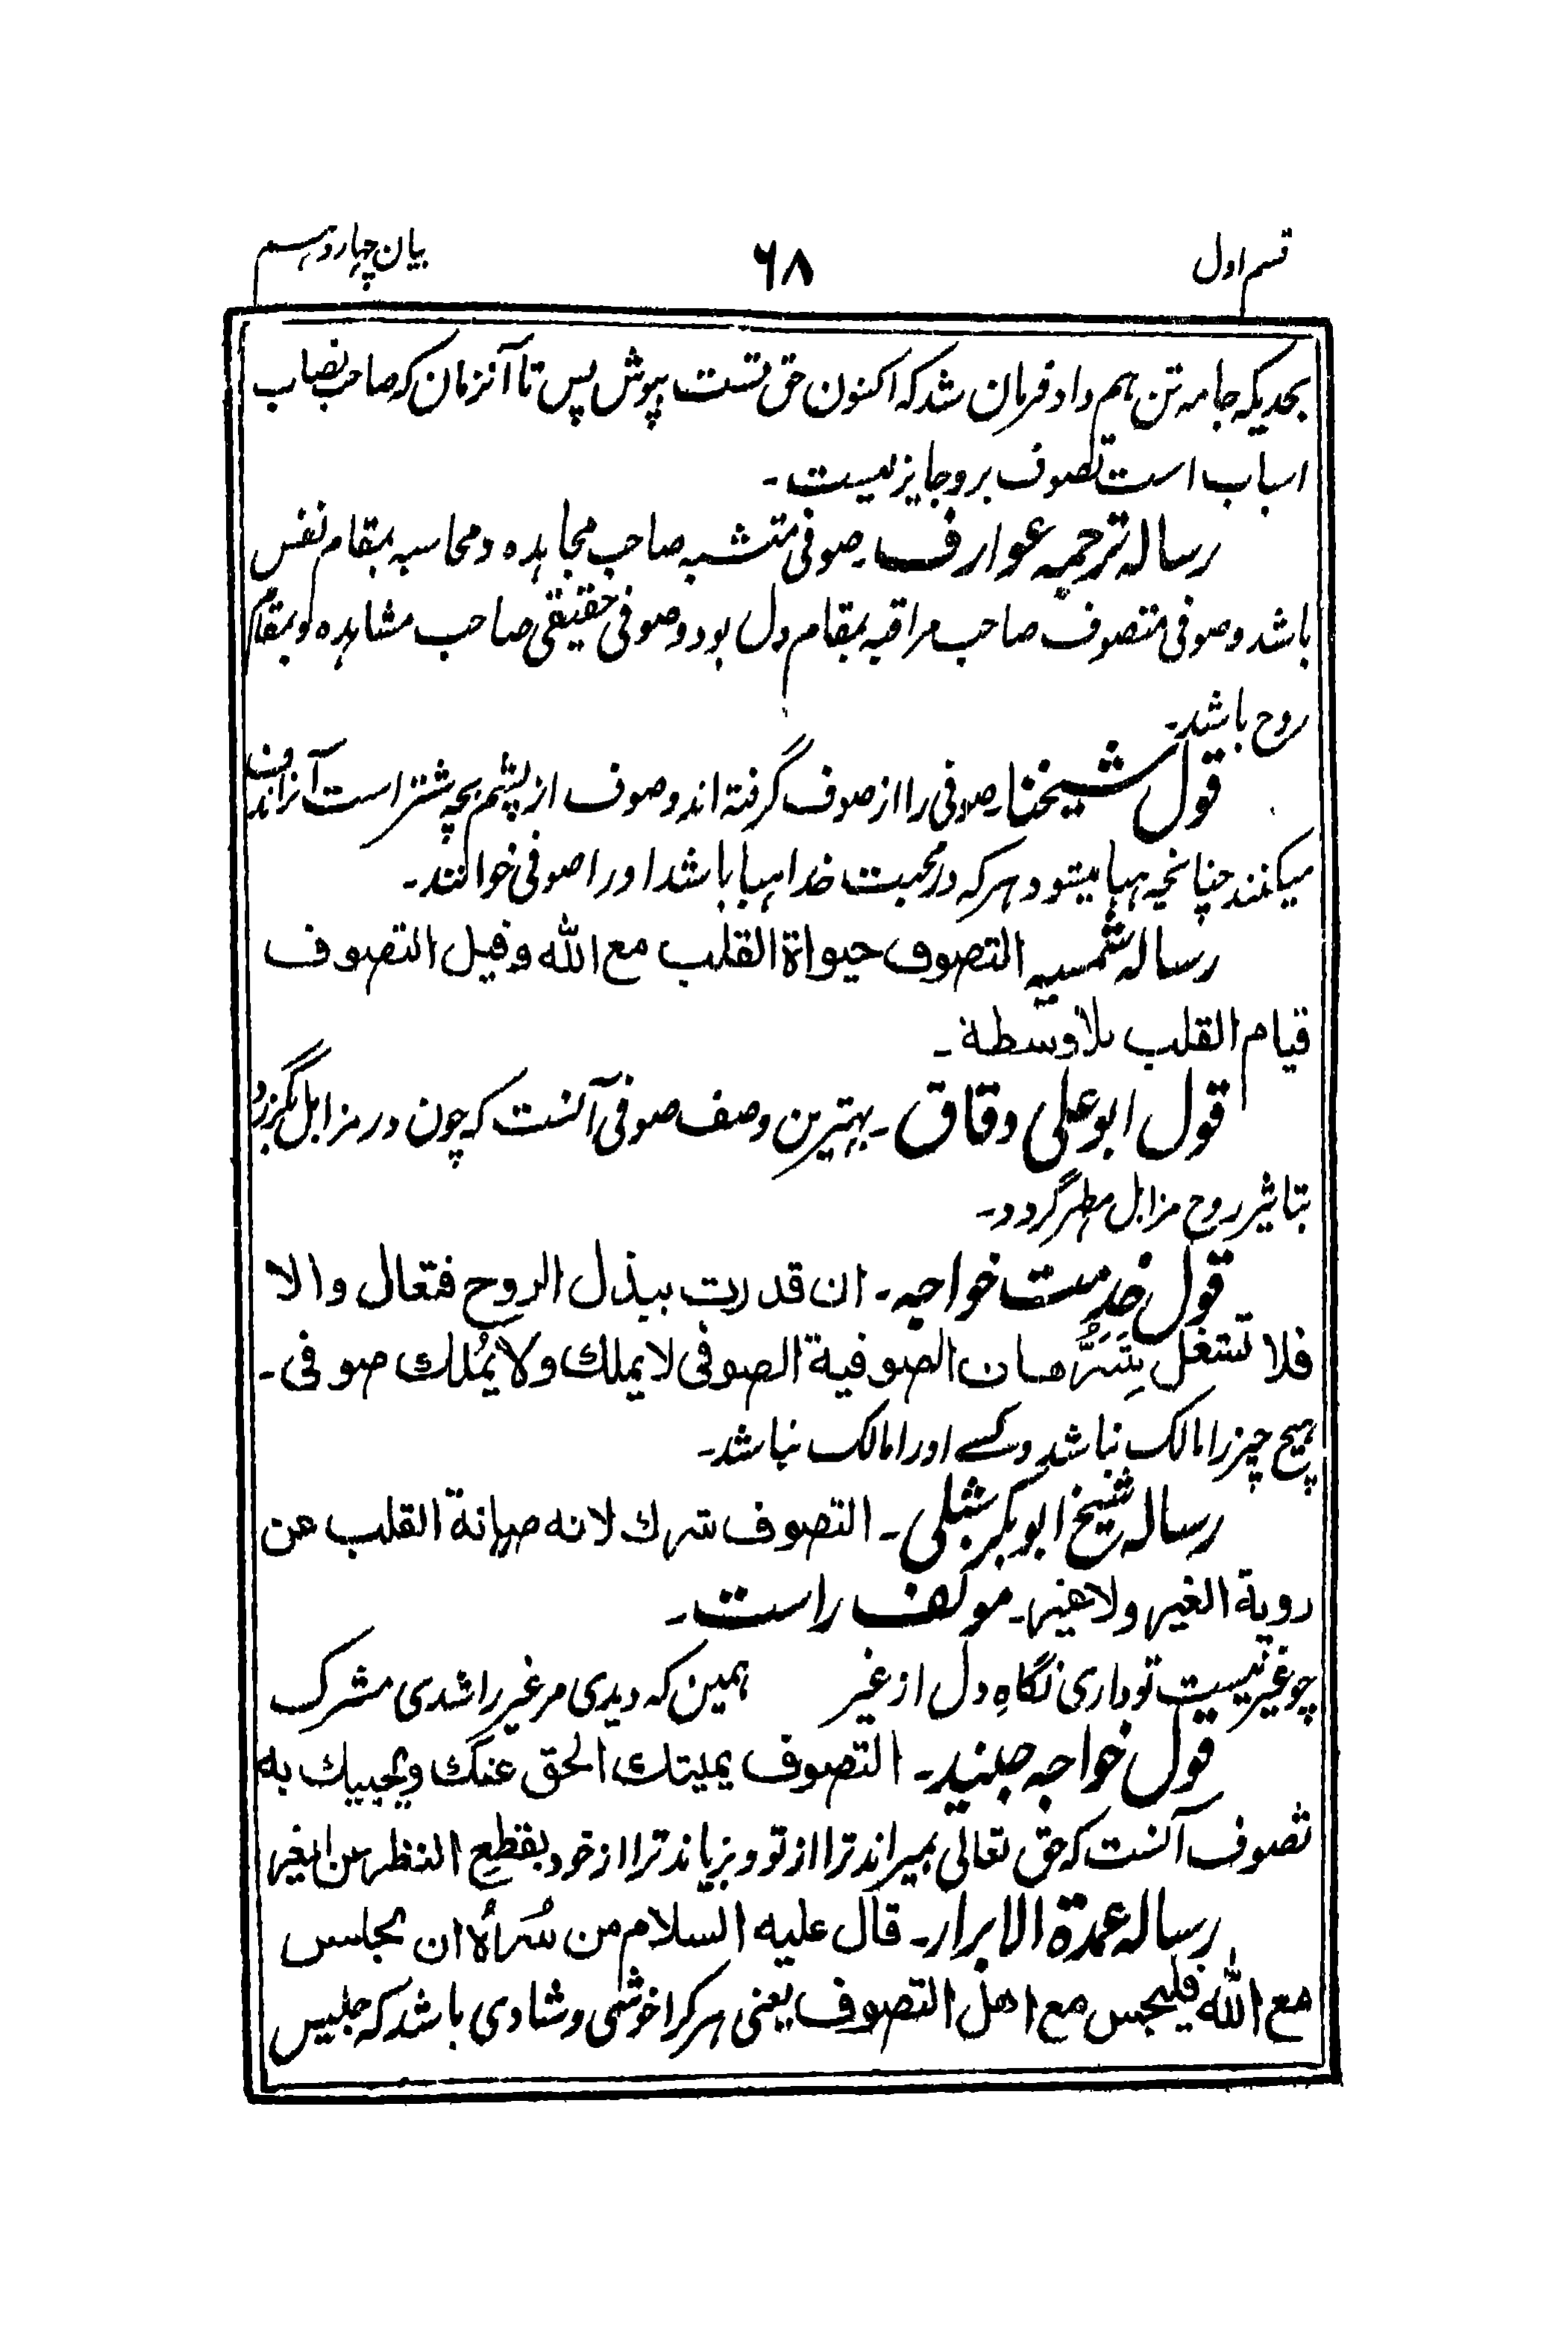 قسم اول
۶۸
بیان چهاردهم
بحدیکه جامه تن هم داد فرمان شد که اکنون حق تست بپوش پس تا آنزمان که صاحب نصاب
اسباب است تصوف بروجایز نیست۔
رساله ترجمه عوارف۔ صوفی متشبه صاحب مجاهده و محاسبه بمقام نفس
باشد و صوفی متصوف صاحب مراقبه بمقام دل بود و صوفی حقیقی صاحب مشاهده و بمقام
روح باشد۔
قول شیخنا۔ صوفی را از صوف گرفته اند و صوف از پشم بچه شتر است آنرا نداف
میکنند چنانچه هبا میشود هرکه در محبت خدا هبا باشد او را صوفی خوانند۔
رساله شمسیه التصوف حیواة القلب مع الله وقیل التصوف
قیام القلب بلا وسطة۔
قول ابو علی دقاق۔ بهترین وصف صوفی آنست که چون در مزابل بگزرد
بتاثیر روح مزابل مطهر گردد۔
قول خدمت خواجه۔ ان قدرت ببذل الروح فتعال والا
فلا تشتغل بِتَرَّهات الصوفیة الصوفی لا یملك ولا یُملك صوفی۔
هیچ چیز را مالک نباشد و کسے او را مالک نباشد۔
رساله شیخ ابوبکر شبلی۔ التصوف شرك لانه صیانة القلب عن
رویة الغیر ولا غیر۔ مولف راست۔
چو غیر نیست تو داری نگاهِ دل از غیر
همین که دیدی مر غیر را شدی مشرک
قول خواجه جنید۔ التصوف یمیتك الحق عنك ویحییك به
تصوف آنست که حق تعالی بمیراند ترا از تو و بزیاند ترا از خود بقطع النظر عن الغیر
رساله عمدة الابرار۔ قال علیه السلام من سُرَّاهُ ان یجلس
مع الله فلیجس مع اهل التصوف یعنی هرکرا خوشی و شادی باشد که جلیس